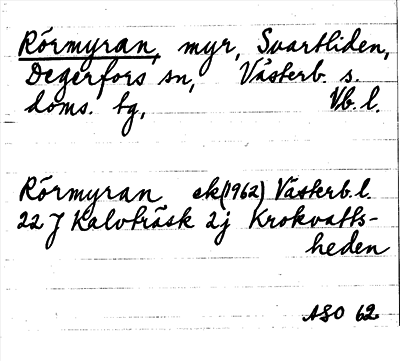 Rörmyran, myr, Svartliden,
Degerfors sn, Västerb. s.
doms. tg, Vb. l.
Rörmyran ek(1962) Västerb. l.
22 J Kalvträsk 2j Krokvatts-
heden
ASO 62